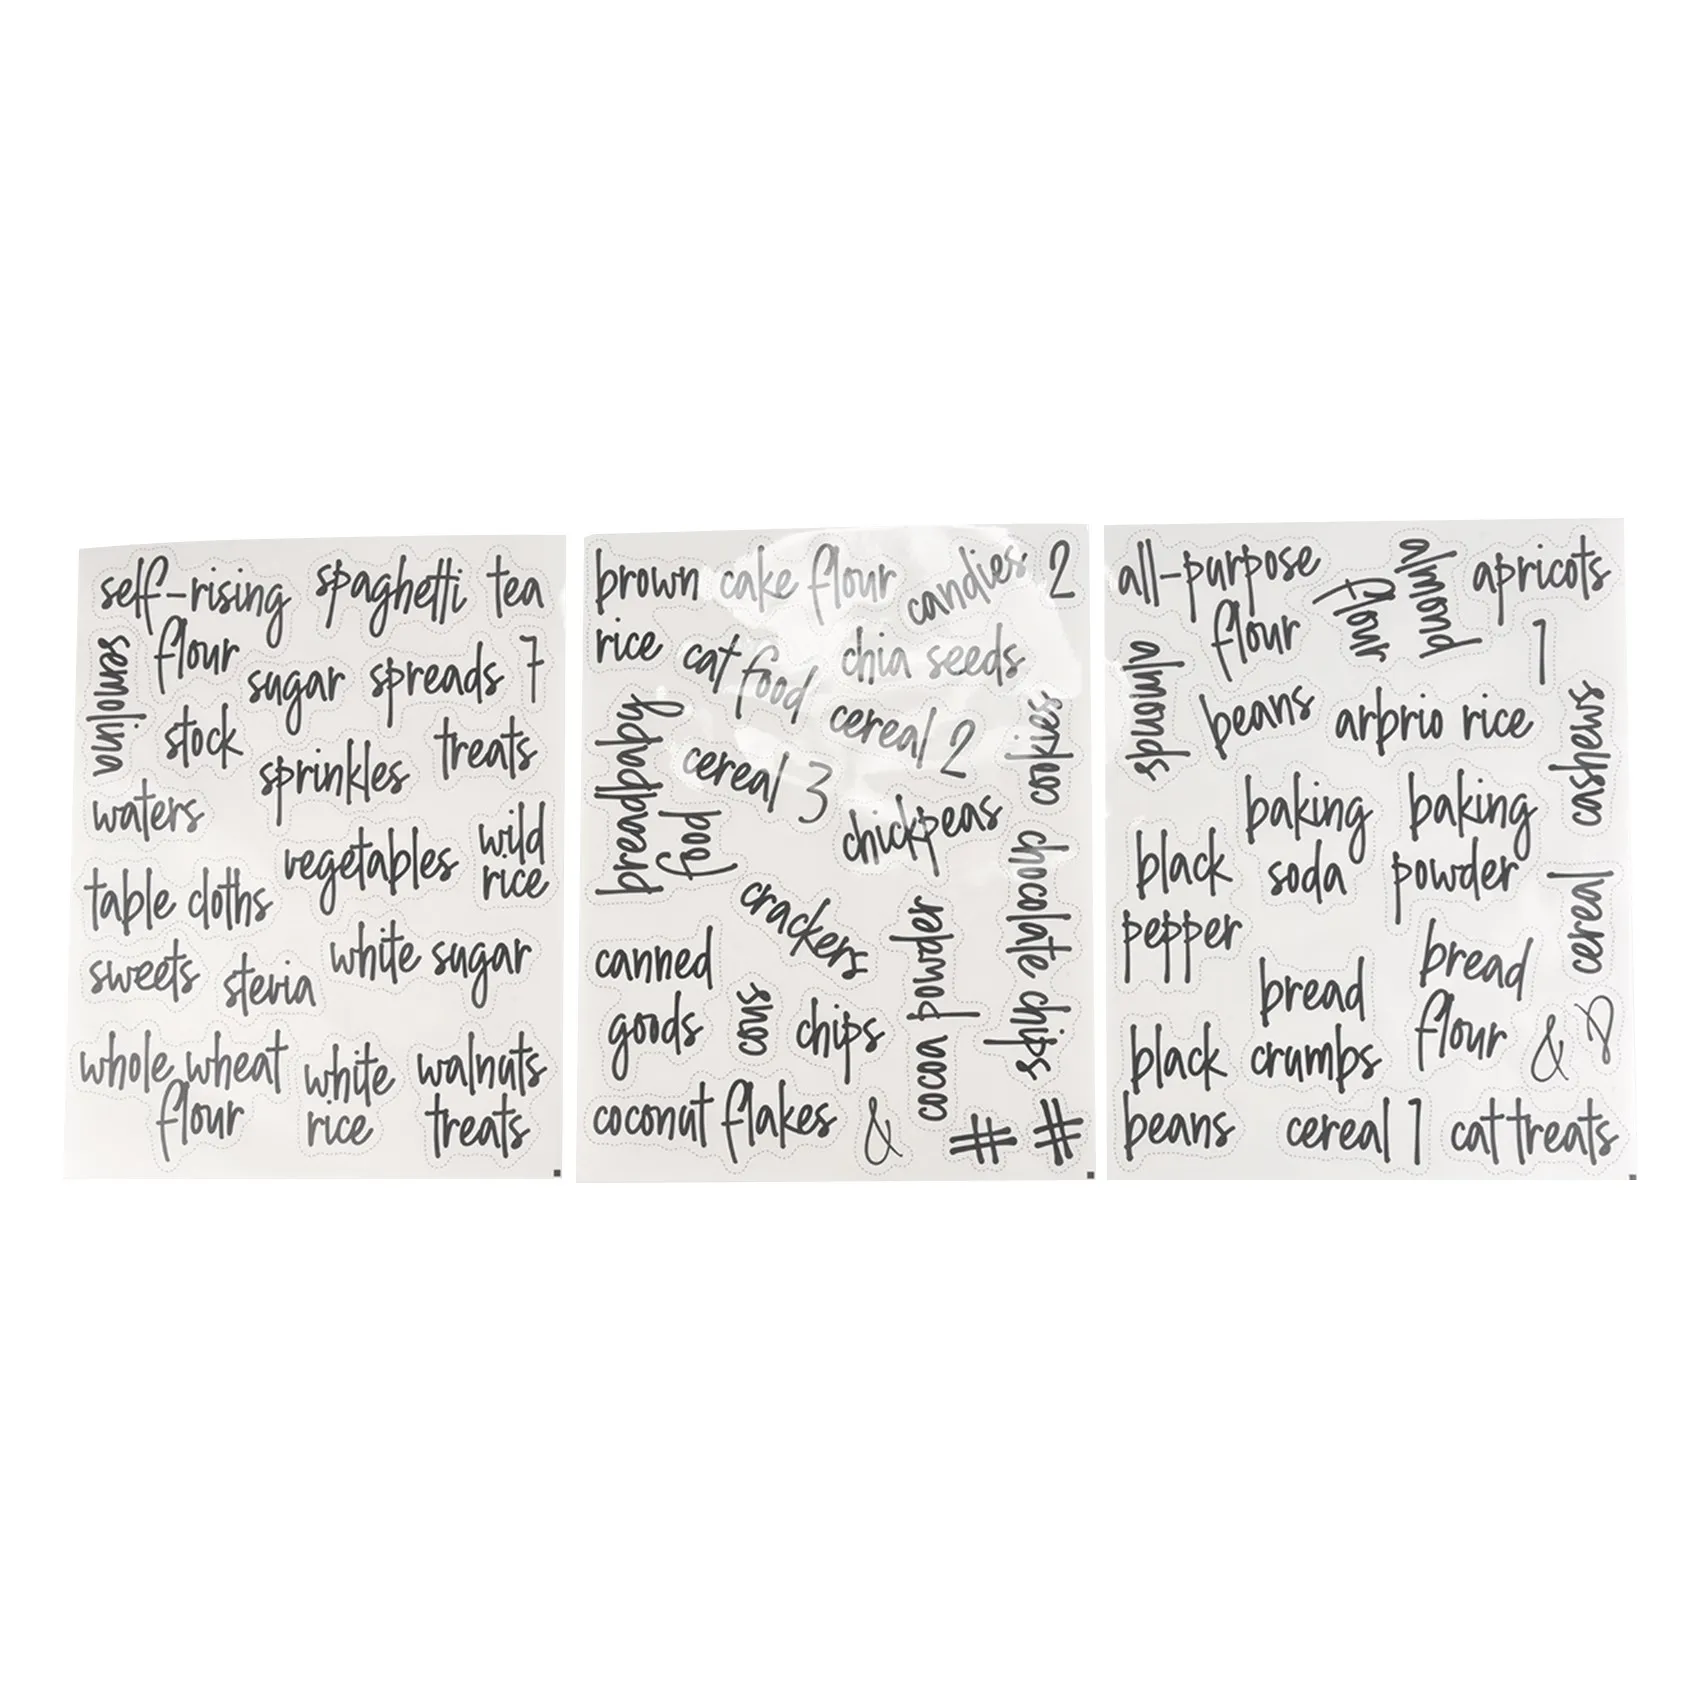 self-rising
flour
spaghetti
tea
semolina
sugar
spreads
7
stock
sprinkles
treats
waters
vegetables
wild
rice
table cloths
sweets
stevia
white sugar
whole wheat
flour
white
rice
walnuts
treats
brown
rice
cake flour
candies
2
cat food
chia seeds
breadpbaby
food
cereal 2
cookies
cereal 3
chickpeas
chocolate chips
crackers
cocoa powder
canned
goods
cons
chips
coconut flakes
&
#
#
all-purpose
flour
almond
flour
apricots
1
almonds
beans
arbrio rice
cashews
baking
soda
baking
powder
black
pepper
cereal
bread
crumbs
bread
flour
&
black
beans
cereal 1
cat treats